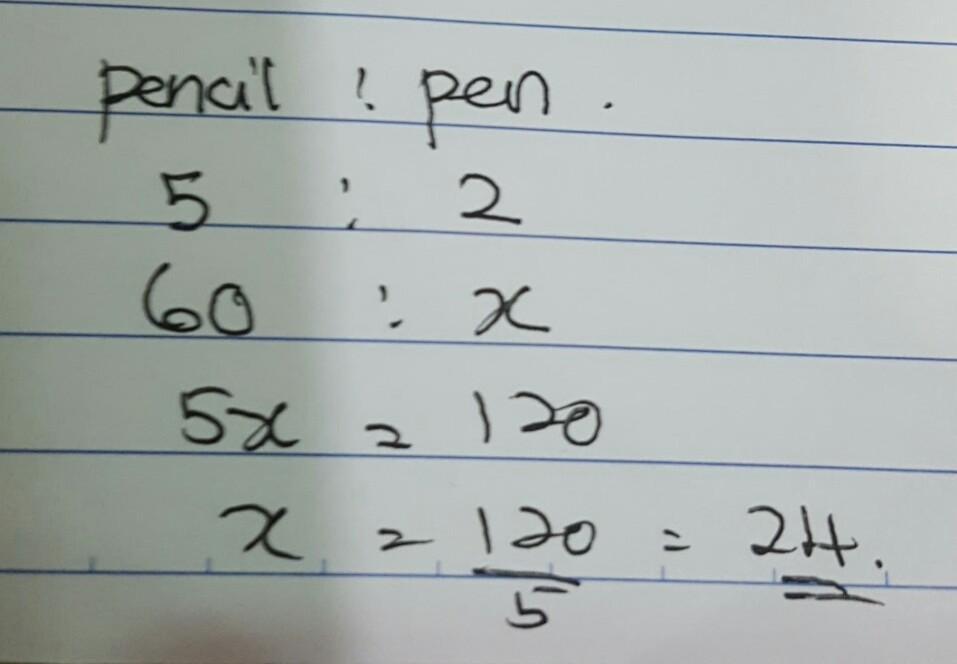 pencil : pen .
5 : 2
60 : x
5x = 120
x = 120/5 = 24.